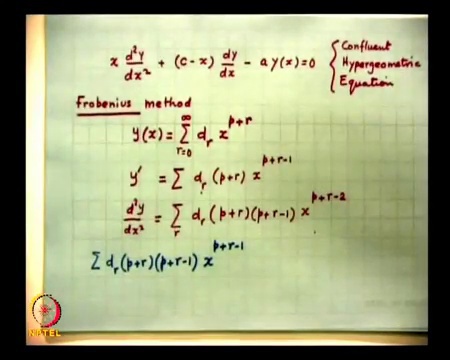 x d²y/dx² + (c-x) dy/dx - a y(x) = 0 { Confluent Hypergeometric Equation
Frobenius method
y(x) = ∑_{r=0}^{∞} d_r x^{p+r}
y′ = ∑ d_r (p+r) x^{p+r-1}
d²y/dx² = ∑_r d_r (p+r)(p+r-1) x^{p+r-2}
∑ d_r (p+r)(p+r-1) x^{p+r-1}
NPTEL